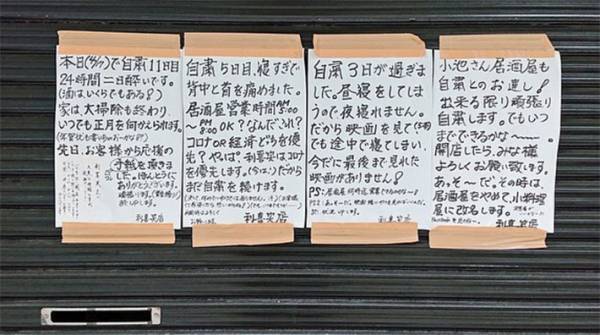 本日(4/17)で自粛11日目
24時間二日酔いです。
(酒はいくらでもある!)
家は、大掃除も終わり、
いつでも正月を向かえられます。
先日、お客様から応援の
手紙を頂きま
した。ほんとうに
ありがとうございます。
頑張ります。
利喜笑店
自粛5日目、寝すぎで
背中と首を痛めました。
居酒屋営業時間AM5:00
〜PM8:00 OK?なんだこれ?
コロナOR経済どちらを優
先?やっぱ。利喜笑はコロナ
を優先します。(今は)だから
まだ自粛を続けます。
利喜笑店
自粛3日が過ぎまし
た。昼寝をしてしま
うので夜寝れません。
だから映画を見て
も途中で寝てしまい、
今だに最後まで見れた
映画がありません!
利喜笑店
小池さん居酒屋も
自粛とのお達し!
出来る限り頑張り
自粛します。でもいつ
までできるかな〜
開店したら、みな様
よろしくお願い致します。
あっ、そ〜だ。その時は、
居酒屋をやめて、小料理
屋に改名します。
利喜笑店